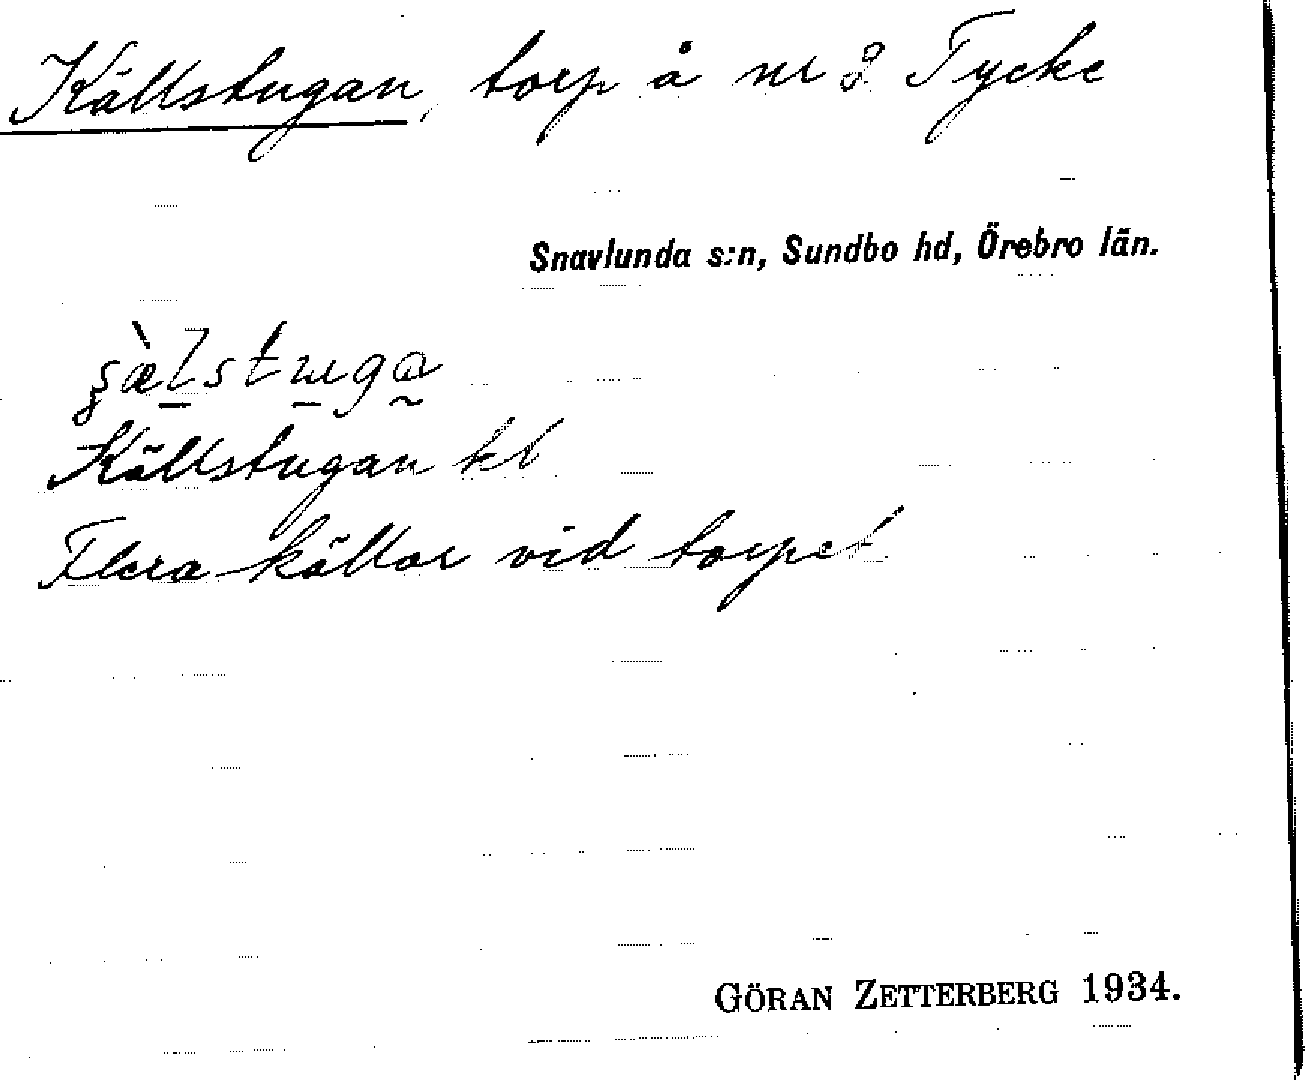 Källstugan, torp å nr 8 Tycke
Snavlunda s:n, Sundbo hd, Örebro län.
Källstugan kt
Flera källor vid torpet
GÖRAN ZETTERBERG 1934.